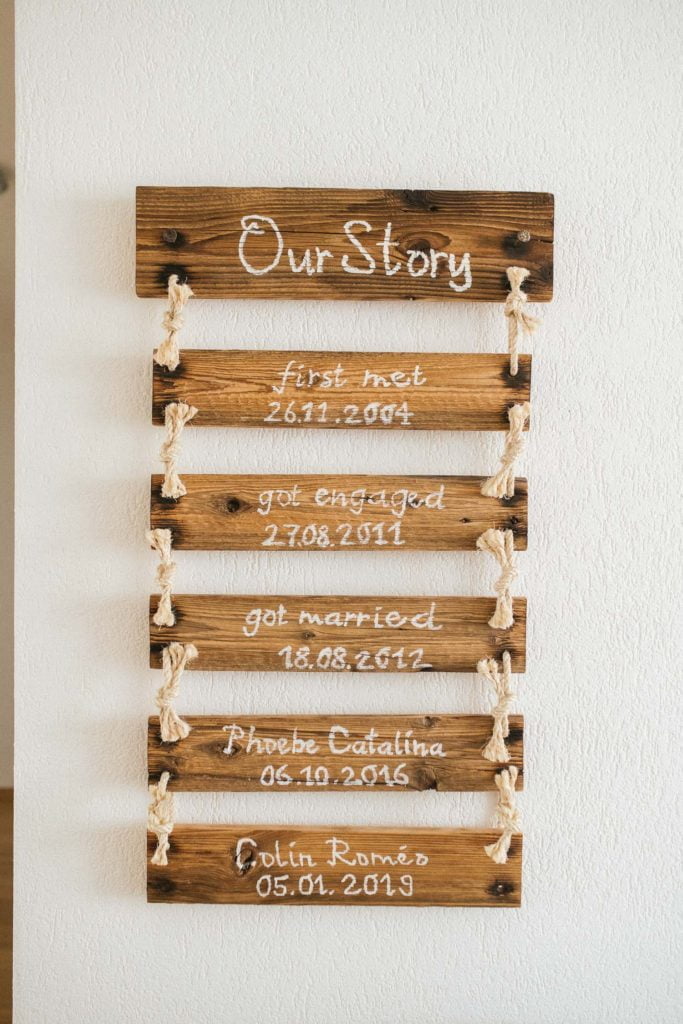 Our Story
first met
26.11.2004
got engaged
27.08.2011
got married
18.08.2012
Phoebe Catalina
06.10.2016
Colin Roméo
05.01.2019